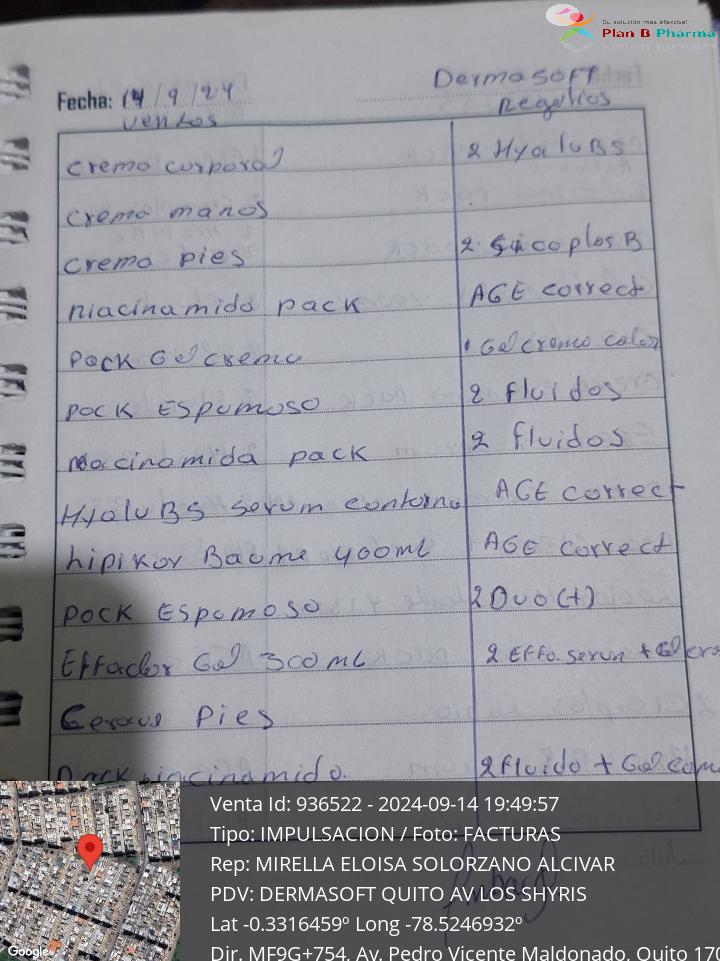 Su solucion mas efectiva!
Plan B Pharma
Dermasoft
Fecha: 14/9/24
Regalios
ventas
crema corporal 2 Hyalu B5
crema manos
crema pies 2 Sicaplas B
niacinamida pack AGE correct
Pack Gel crema 1 Gel crema color
Pack Espumoso 2 fluidos
niacinamida pack 2 fluidos
Hyalu B5 serum contorno AGE correct
lipikar Baume 400ml AGE correct
Pack Espumoso 2 Duo (+)
Effaclar Gel 300 ml 2 Effa. serum + Gel
Cerave Pies
Pack niacinamida. 2 fluido + Gel
Venta Id: 936522 - 2024-09-14 19:49:57
Tipo: IMPULSACION / Foto: FACTURAS
Rep: MIRELLA ELOISA SOLORZANO ALCIVAR
PDV: DERMASOFT QUITO AV LOS SHYRIS
Lat -0.3316459º Long -78.5246932º
Dir. MF9G+754, Av. Pedro Vicente Maldonado, Quito 170
Google